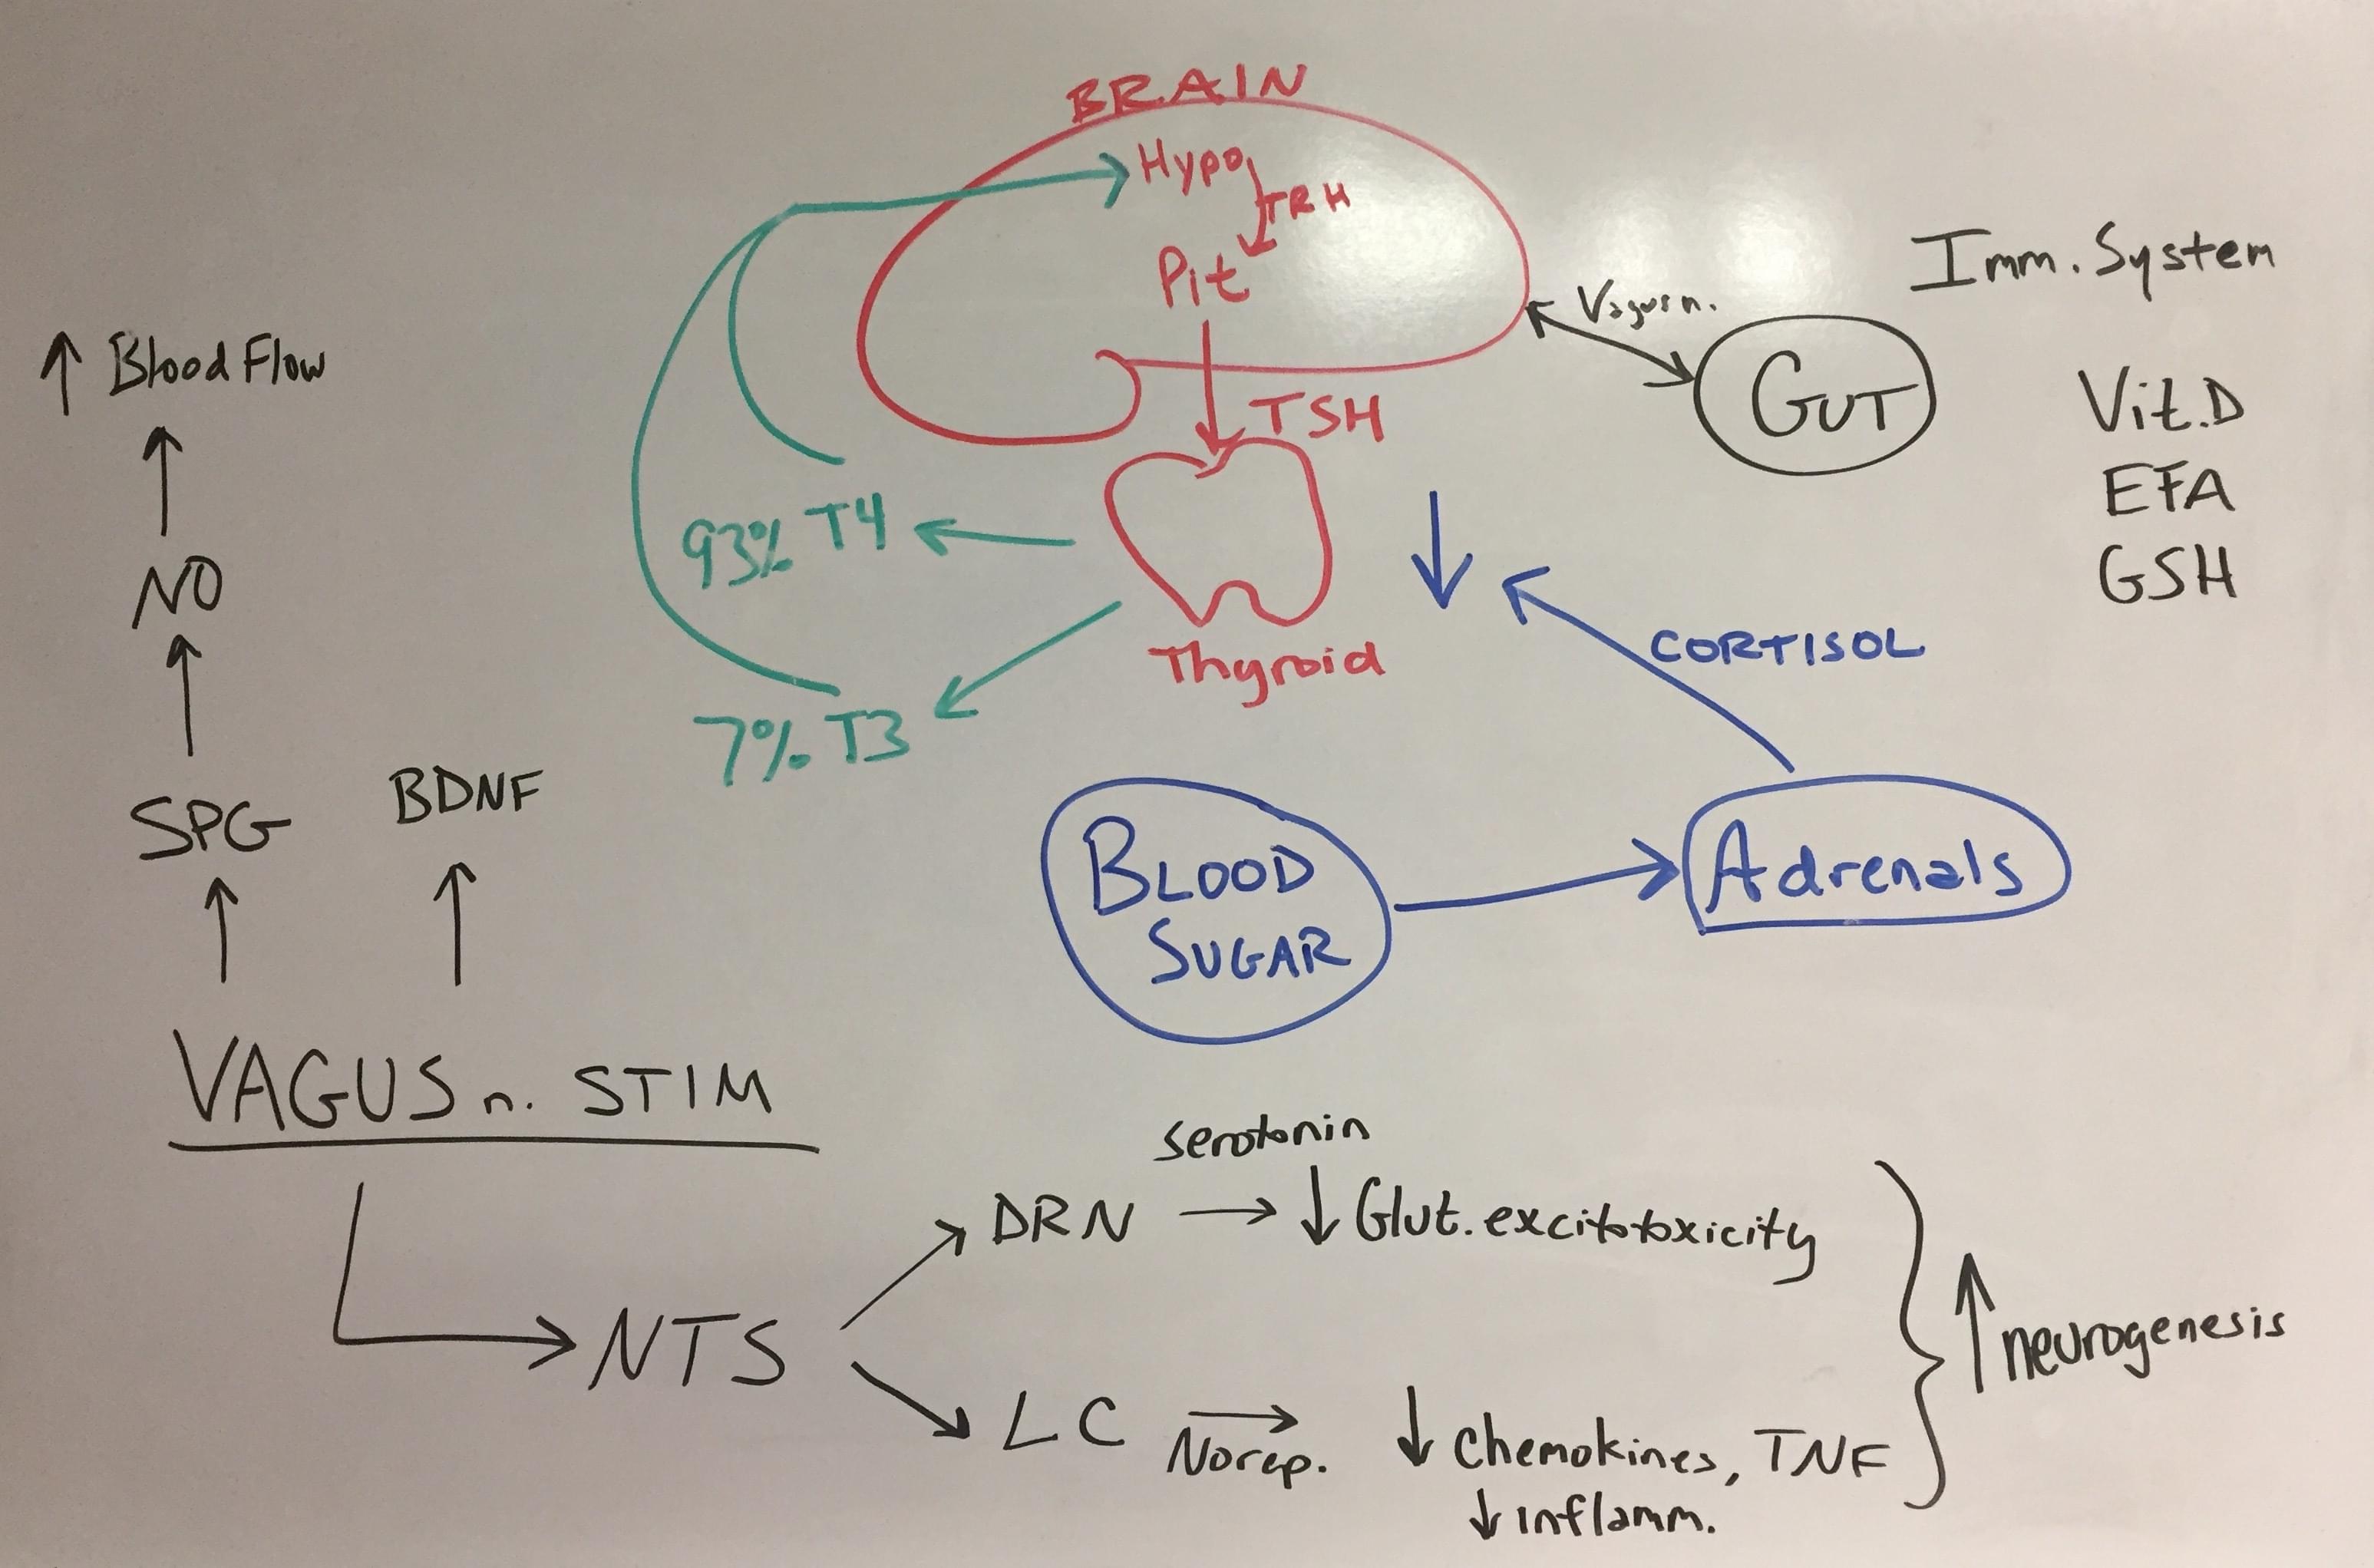 BRAIN
Hypo
TRH
Pit
TSH
Thyroid
93% T4
7% T3
Vagus n.
GUT
Imm. System
Vit. D
EFA
GSH
CORTISOL
Adrenals
BLOOD
SUGAR
↑ Blood Flow
NO
SPG
BDNF
VAGUS n. STIM
NTS
serotonin
DRN → ↓ Glut. excitotoxicity
LC → ↓ chemokines, TNF
Norep.
↓ inflamm.
↑ neurogenesis